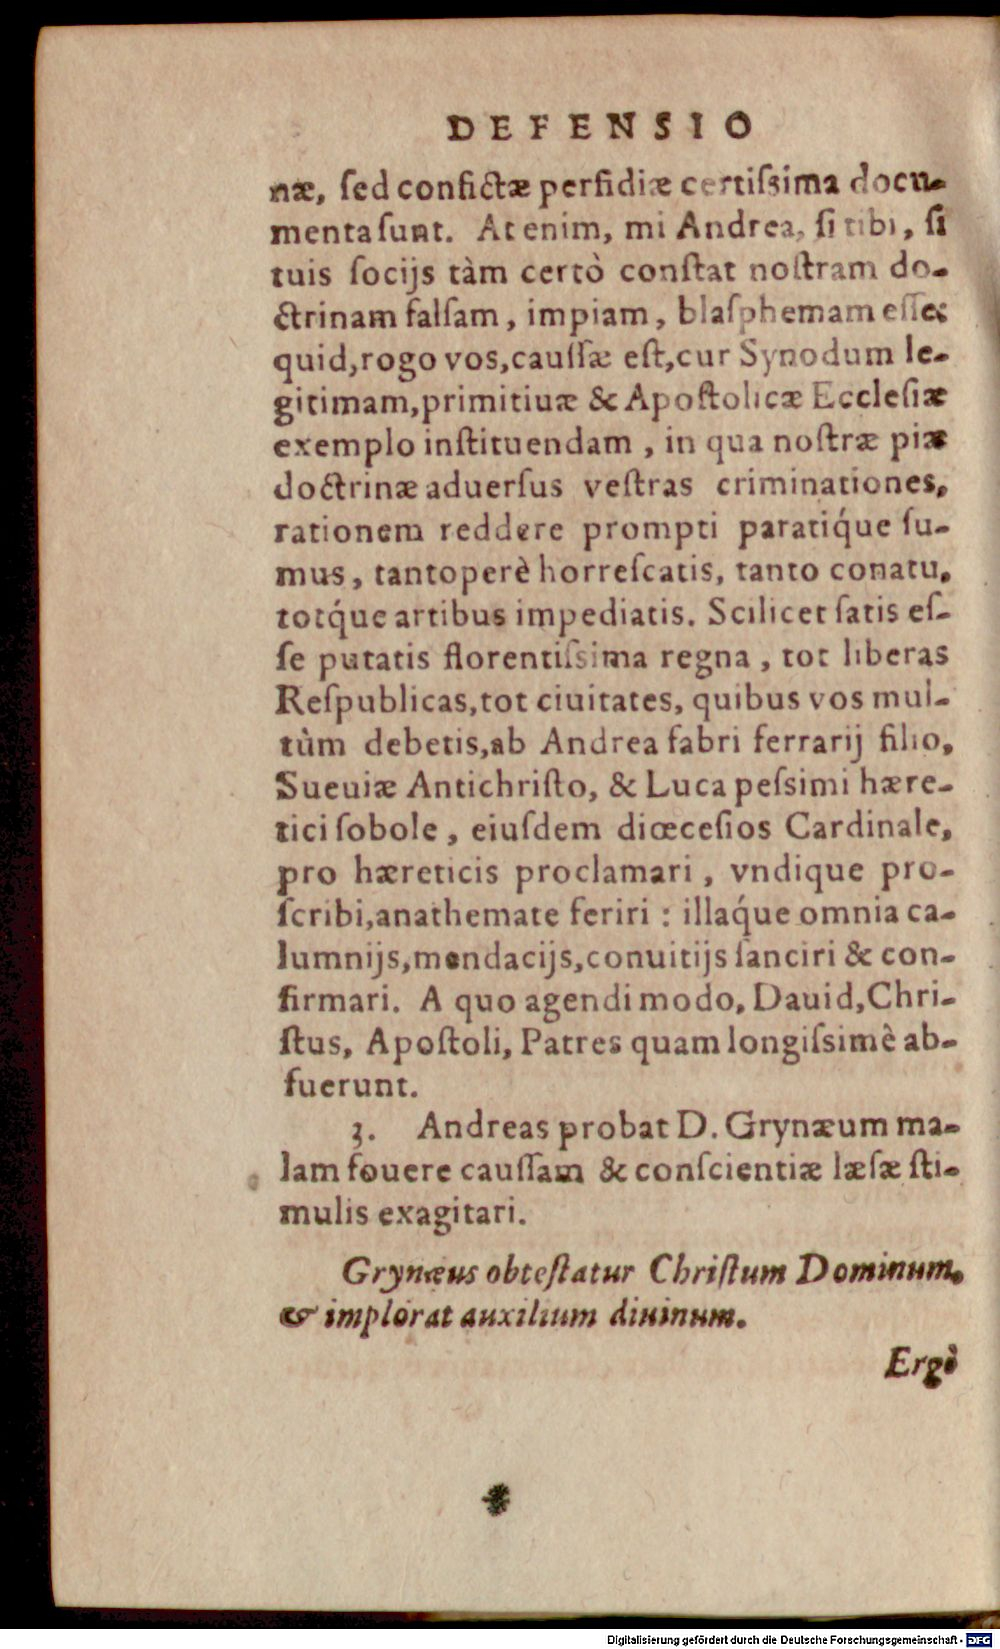 DEFENSIO
næ, ſed confictæ perfidiæ certiſsima docu-
menta ſunt. At enim, mi Andrea, ſi tibi, ſi
tuis ſocijs tàm certò conſtat noſtram do-
ctrinam falſam, impiam, blaſphemam eſſe:
quid, rogo vos, cauſſæ eſt, cur Synodum le-
gitimam, primitiuæ & Apoſtolicæ Eccleſiæ
exemplo inſtituendam, in qua noſtræ piæ
doctrinæ aduerſus veſtras criminationes,
rationem reddere prompti paratiq́ue ſu-
mus, tantoperè horreſcatis, tanto conatu,
totq́ue artibus impediatis. Scilicet ſatis eſ-
ſe putatis florentiſsima regna, tot liberas
Reſpublicas, tot ciuitates, quibus vos mul-
tùm debetis, ab Andrea fabri ferrarij filio,
Sueuiæ Antichriſto, & Luca peſsimi hære-
tici ſobole, eiuſdem diœceſios Cardinale,
pro hæreticis proclamari, vndique pro-
ſcribi, anathemate feriri : illaq́ue omnia ca-
lumnijs, mendacijs, conuitijs ſanciri & con-
firmari. A quo agendi modo, Dauid, Chri-
ſtus, Apoſtoli, Patres quam longiſsimè ab-
fuerunt.
3. Andreas probat D. Grynæum ma-
lam fouere cauſſam & conſcientiæ læſæ ſti-
mulis exagitari.
Grynæus obteſtatur Chriſtum Dominum,
& implorat auxilium diuinum.
Ergò
Digitalisierung gefördert durch die Deutsche Forschungsgemeinschaft - DFG